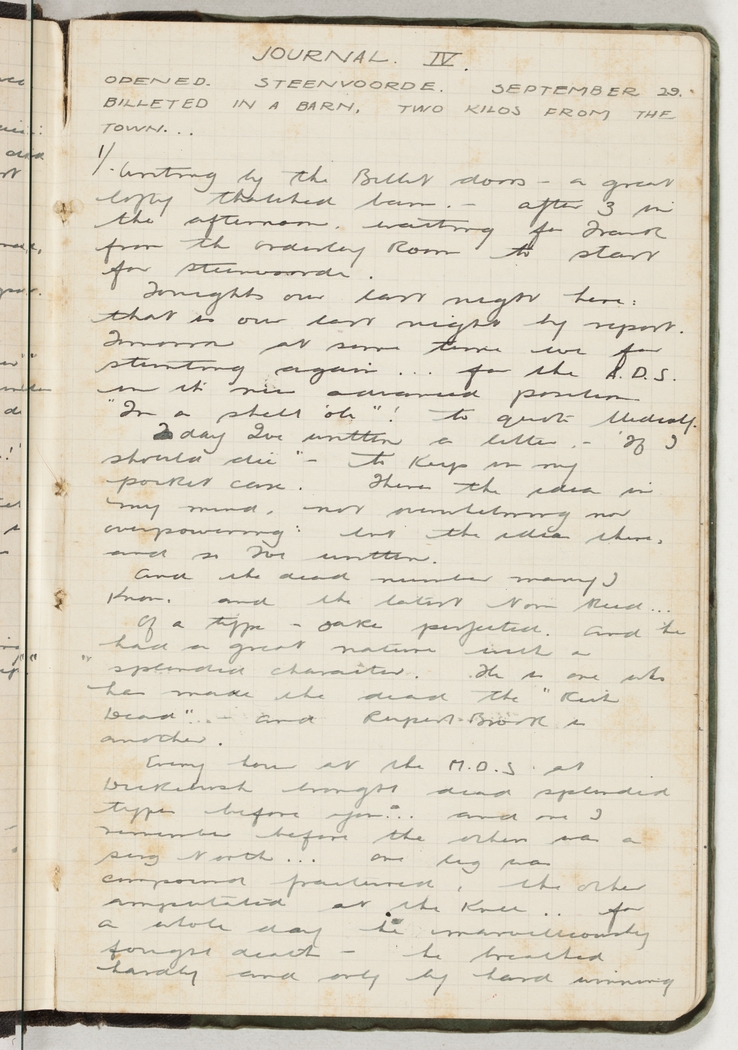 JOURNAL. IV.
OPENED. STEENVOORDE. SEPTEMBER 29.
BILLETED IN A BARN, TWO KILOS FROM THE
TOWN...
1/. Writing by the Billet doors – a great
lofty thatched barn. – after 3 in
the afternoon. waiting for Frank
from th orderley Room to start
for Steenvoorde.
Tonights our last night here:
that is our last night by report.
Tomorro at some time we
stunting again ... for the A.D.S.
in it new advanced position
"In a shell 'ole"! to quote
Today Ive written a letter. – "If I
should die" – to keep in my
pocket case. Theres the idea in
my mind, not overwhelming nor
overpowering: but the idea there,
and so Ive written.
And the dead number many I
Know. and the latest Norn Reed...
of a type – oake perfected. and he
had a great nature with a
splendid character. He is one who
has made the dead the "Rich
Dead"... – and Rupert Brook is
another.
Every hour at the M.D.S. at
Dickebush brought dead splendid
types before you... and one I
remember before the others was a
Serg North... one leg was
compound fractured, the other
amputated at the Knee .. for
a whole day he marvellously
fought death – he breathed
hardly and only by hard winning